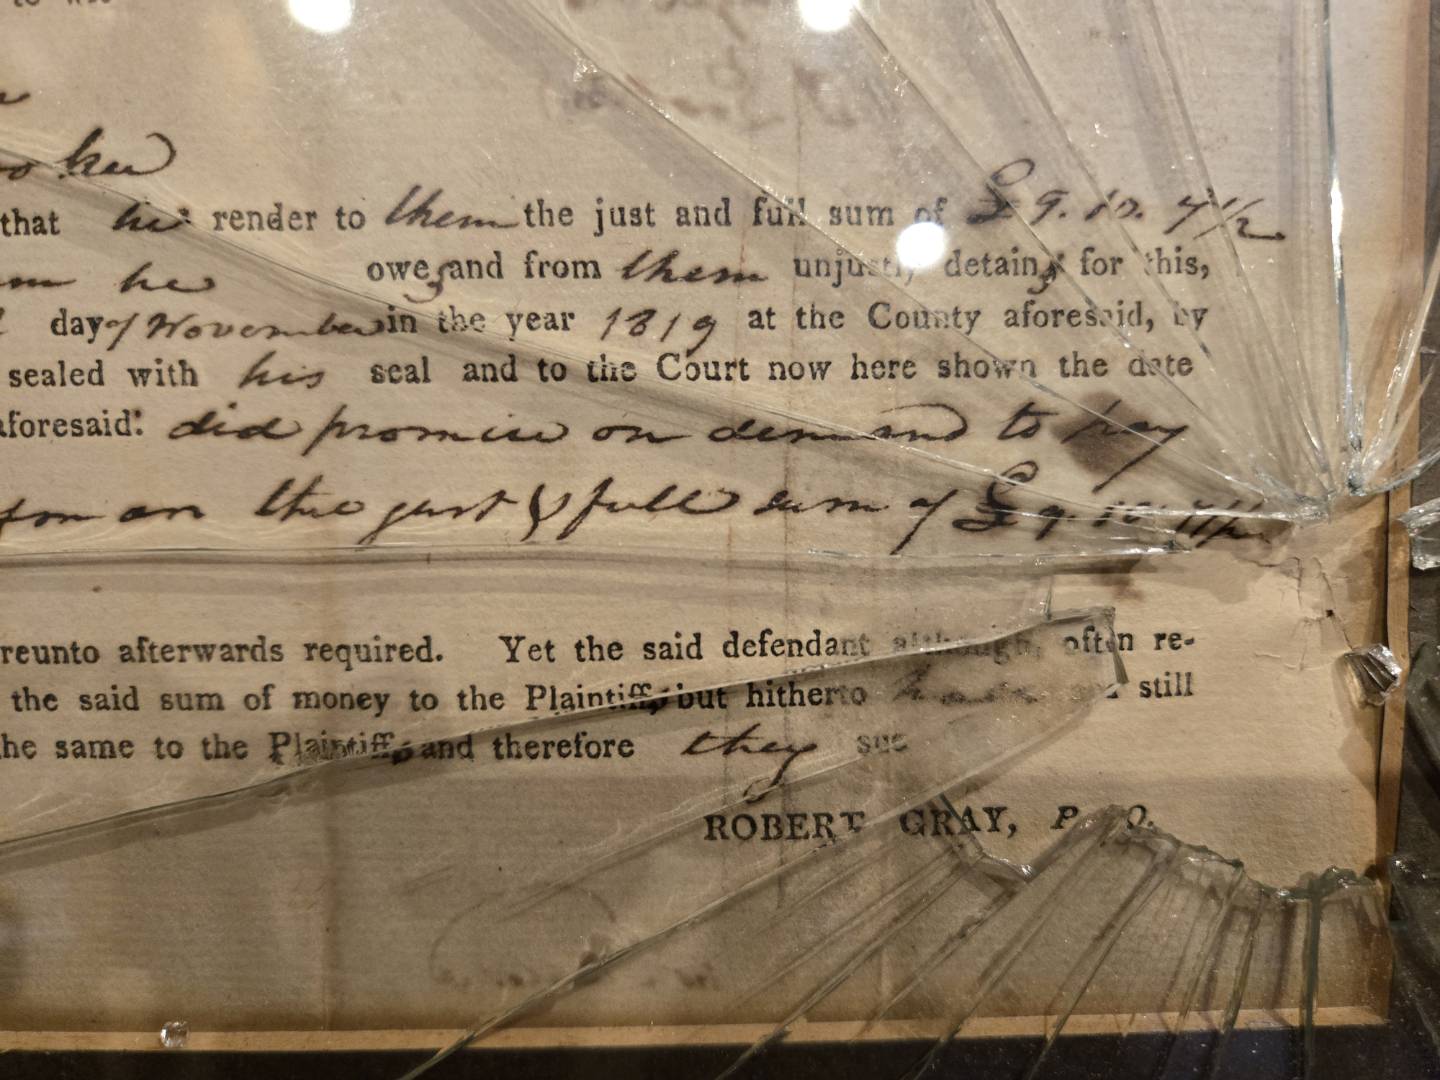 that he render to them the just and full sum of £9. 10. 4½
he owes and from them unjustly detains for this,
day of November in the year 1819 at the County aforesaid, by
sealed with his seal and to the Court now here shown the date
aforesaid: did promise on demand to pay
on the just & full sum of £9. 10. 4½
reunto afterwards required. Yet the said defendant although, often re-
the said sum of money to the Plaintiffs, but hitherto still
the same to the Plaintiffs and therefore they sue
ROBERT GRAY, P. Q.